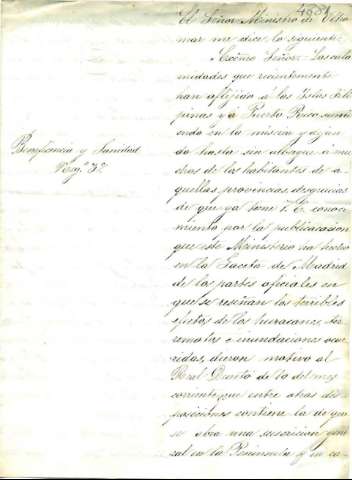 4881
El Señor Ministro de Ultra
mar me dice lo siguiente
Excmo Señor: Las cala
midades que recientemente
han aflijido á las Islas Fili
pinas y á Puerto Rico, sumi
endo en la miseria y dejan
do hasta sin albergue á mu
chos de los habitantes de a
quellas provincias, desgracias
de que ya tiene V. E. conoci
miento por la publicacion
que este Ministerio ha hecho
en la Gaceta de Madrid
de los partes oficiales en
que se reseñan los terribles
efectos de los huracanes, ter
remotos e inundaciones ocur
ridas, dieron motivo al
Real Decreto de 10 del mes
corriente, que entre otras dis
posiciones contiene la de que
se abra una suscricion gene
ral en la Peninsula y en ca-
Beneficencia y Sanidad
Neg.º 3º